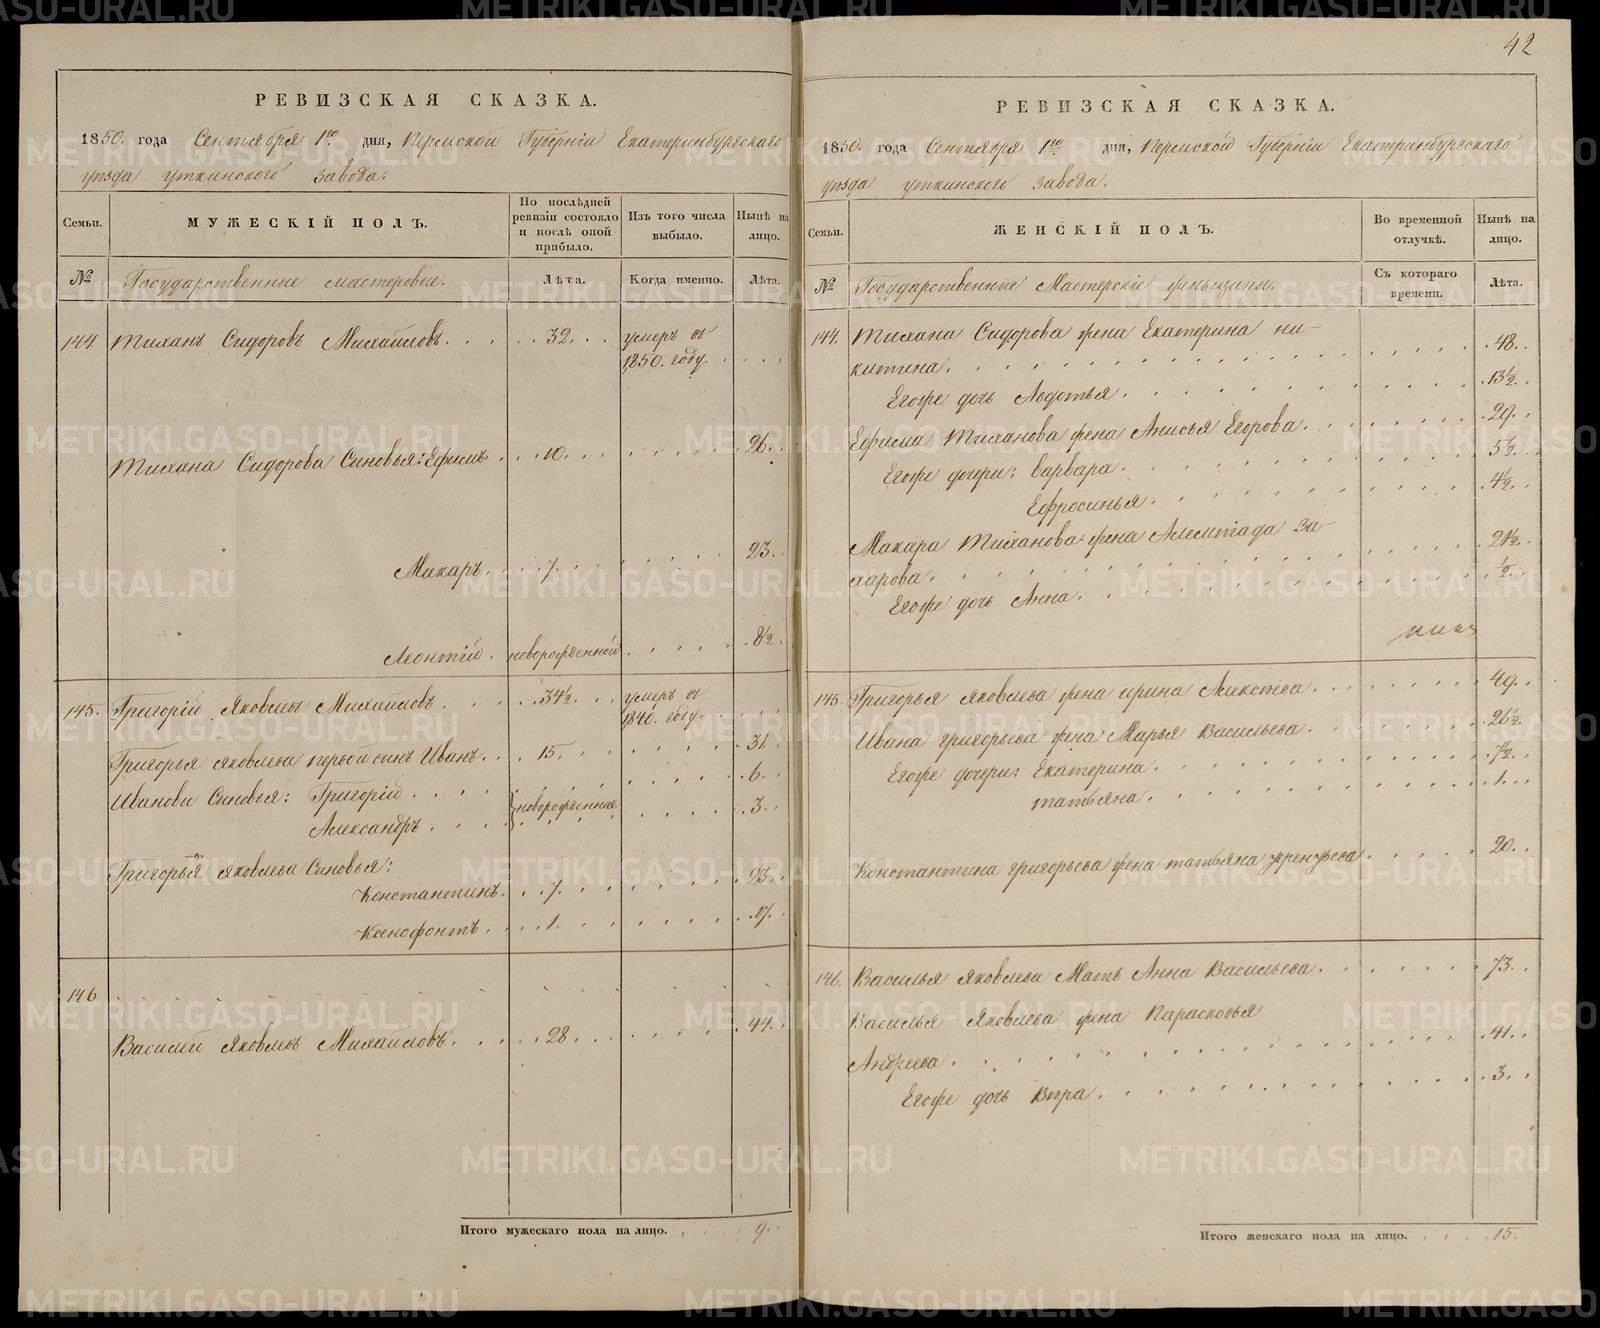 42
РЕВИЗСКАЯ СКАЗКА.
1850. года Сентября 1го дня, Пермской Губерніи Екатеринбургскаго
уѣзда уткинского завода.
Семьи.
МУЖЕСКІЙ ПОЛЪ.
По послѣдней ревизіи состояло и послѣ оной прибыло.
Изъ того числа выбыло.
Нынѣ на лицо.
№
Государственные мастеровые.
Лѣта.
Когда именно.
Лѣта.
144 Тиханъ Сидоровъ Михайловъ. 32. умеръ въ
1850. году.
Тихана Сидорова Сыновья: Ефимъ 10. 26.
Макаръ. 7. 23.
Леонтій. новорожденной 8½.
145. Григорій Яковлевъ Михайловъ. 34½. умеръ въ
1840. году.
Григорья яковлева первой сынъ Иванъ. 15. 31.
Ивановы Сыновья: Григорій 6.
Александръ. новорожденные 3.
Григорья яковлева Сыновья:
Константинъ. 7. 23.
Ксенофонтъ. 1. 17.
146
Василей Яковлевъ Михайловъ. 28. 44.
Итого мужескаго пола на лицо. 9.
РЕВИЗСКАЯ СКАЗКА.
1850. года Сентября 1го дня, Пермской Губерніи Екатеринбургскаго
уѣзда уткинского завода.
Семьи.
ЖЕНСКІЙ ПОЛЪ.
Во временной отлучкѣ.
Нынѣ на лицо.
№
Государственные Мастерскіе женщины.
Съ котораго времени.
Лѣта.
144. Тихана Сидорова жена Екатерина ни-
китина. 48.
Егоже дочь Авдотья. 13½.
Ефима Тиханова жена Анисья Егорова. 29.
Егоже дочери: варвара. 5½.
Ефросинья. 4½.
Макара Тиханова жена Алемпіада за-
харова. 21½.
Егоже дочь Анна. ½.
145. Григорья яковлева жена ирина Алексѣева. 49.
Ивана григорьева жена Марья Васильева. 26½.
Егоже дочери: Екатерина. 7½.
татьяна. 1.
Константина григорьева жена татьяна 20.
146. Василья яковлева Мать Анна Васильева. 73.
Василья Яковлева жена Парасковья
Андреева. 41.
Егоже дочь Вѣра. 3.
Итого женскаго пола на лицо. 15.
METRIKI.GASO-URAL.RU